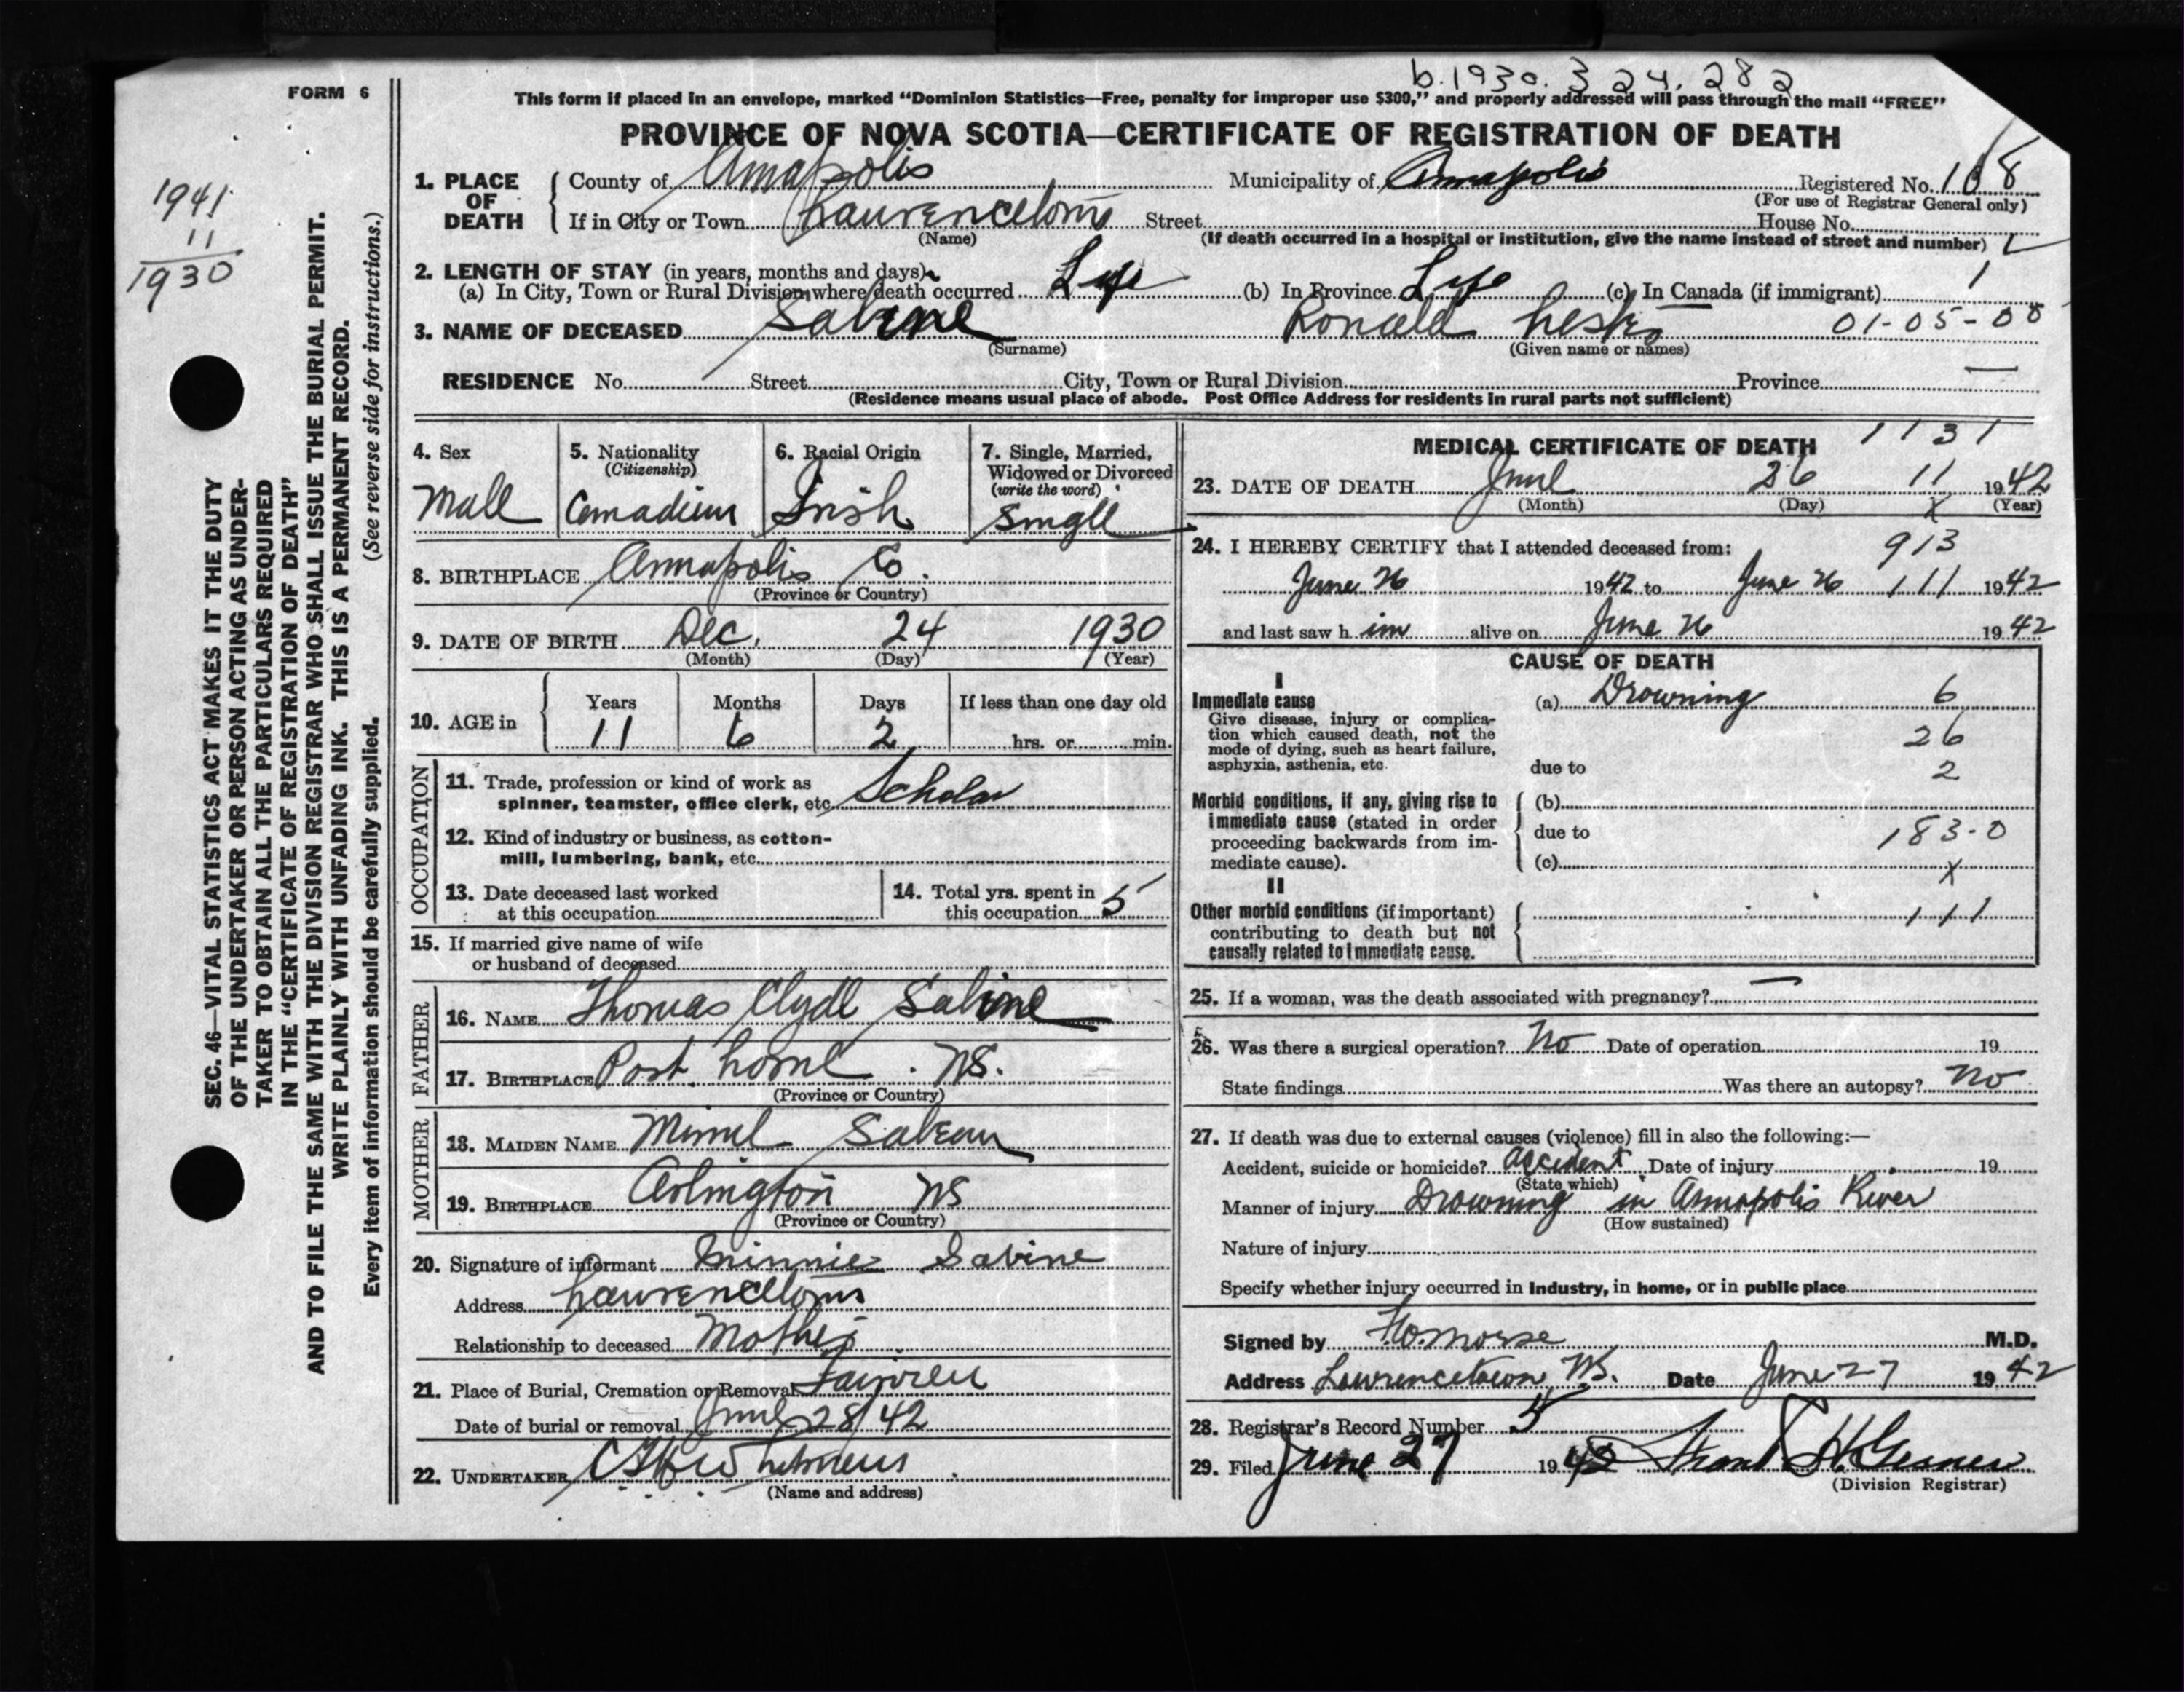 b. 1930. 3 24. 282
FORM 6
This form if placed in an envelope, marked “Dominion Statistics—Free, penalty for improper use $300,” and properly addressed will pass through the mail “FREE”
PROVINCE OF NOVA SCOTIA—CERTIFICATE OF REGISTRATION OF DEATH
1941
11
1930
SEC. 46—VITAL STATISTICS ACT MAKES IT THE DUTY
OF THE UNDERTAKER OR PERSON ACTING AS UNDER-
TAKER TO OBTAIN ALL THE PARTICULARS REQUIRED
IN THE “CERTIFICATE OF REGISTRATION OF DEATH”
AND TO FILE THE SAME WITH THE DIVISION REGISTRAR WHO SHALL ISSUE THE BURIAL PERMIT.
WRITE PLAINLY WITH UNFADING INK. THIS IS A PERMANENT RECORD.
Every item of information should be carefully supplied. (See reverse side for instructions.)
1. PLACE OF DEATH
County of Annapolis Municipality of Annapolis Registered No. 168
(For use of Registrar General only)
If in City or Town Laurencetown Street House No.
(Name) (If death occurred in a hospital or institution, give the name instead of street and number)
2. LENGTH OF STAY (in years, months and days)
(a) In City, Town or Rural Division where death occurred Life (b) In Province Life (c) In Canada (if immigrant) 1
3. NAME OF DECEASED Sabine Ronald 01-05-00
(Surname) (Given name or names)
RESIDENCE No. Street City, Town or Rural Division Province —
(Residence means usual place of abode. Post Office Address for residents in rural parts not sufficient)
4. Sex Male
5. Nationality (Citizenship) Canadian
6. Racial Origin Irish
7. Single, Married, Widowed or Divorced (write the word) Single
8. BIRTHPLACE Annapolis Co.
(Province or Country)
9. DATE OF BIRTH Dec. 24 1930
(Month) (Day) (Year)
10. AGE in Years Months Days If less than one day old
11 6 2 hrs. or min.
OCCUPATION
11. Trade, profession or kind of work as
spinner, teamster, office clerk, etc. Scholar
12. Kind of industry or business, as cotton-
mill, lumbering, bank, etc.
13. Date deceased last worked
at this occupation
14. Total yrs. spent in
this occupation 5
15. If married give name of wife
or husband of deceased
FATHER
16. NAME Thomas Clyde Sabine
17. BIRTHPLACE Port Lorne. NS.
(Province or Country)
MOTHER
18. MAIDEN NAME Minnie Sabean
19. BIRTHPLACE Arlington NS
(Province or Country)
20. Signature of informant Minnie Sabine
Address Laurencetown
Relationship to deceased Mother
21. Place of Burial, Cremation or Removal
Date of burial or removal June 28/42
22. UNDERTAKER
(Name and address)
MEDICAL CERTIFICATE OF DEATH 1131
23. DATE OF DEATH June 26 11 1942
(Month) (Day) X (Year)
24. I HEREBY CERTIFY that I attended deceased from: 913
June 26 1942 to June 26 111 1942
and last saw h im alive on June 26 1942
CAUSE OF DEATH
I
Immediate cause
Give disease, injury or complica-
tion which caused death, not the
mode of dying, such as heart failure,
asphyxia, asthenia, etc.
(a) Drowning 6
26
due to 2
Morbid conditions, if any, giving rise to
immediate cause (stated in order
proceeding backwards from im-
mediate cause).
(b)
due to 183-0
(c) X
II
Other morbid conditions (if important)
contributing to death but not
causally related to immediate cause.
111
25. If a woman, was the death associated with pregnancy? —
26. Was there a surgical operation? No Date of operation 19
State findings Was there an autopsy? No
27. If death was due to external causes (violence) fill in also the following:—
Accident, suicide or homicide? Accident Date of injury 19
(State which)
Manner of injury Drowning in Annapolis River
(How sustained)
Nature of injury
Specify whether injury occurred in industry, in home, or in public place
Signed by Morse M.D.
Address Lawrencetown NS. Date June 27 1942
28. Registrar's Record Number 5
29. Filed June 27 1942 Frank H. Gesner
(Division Registrar)